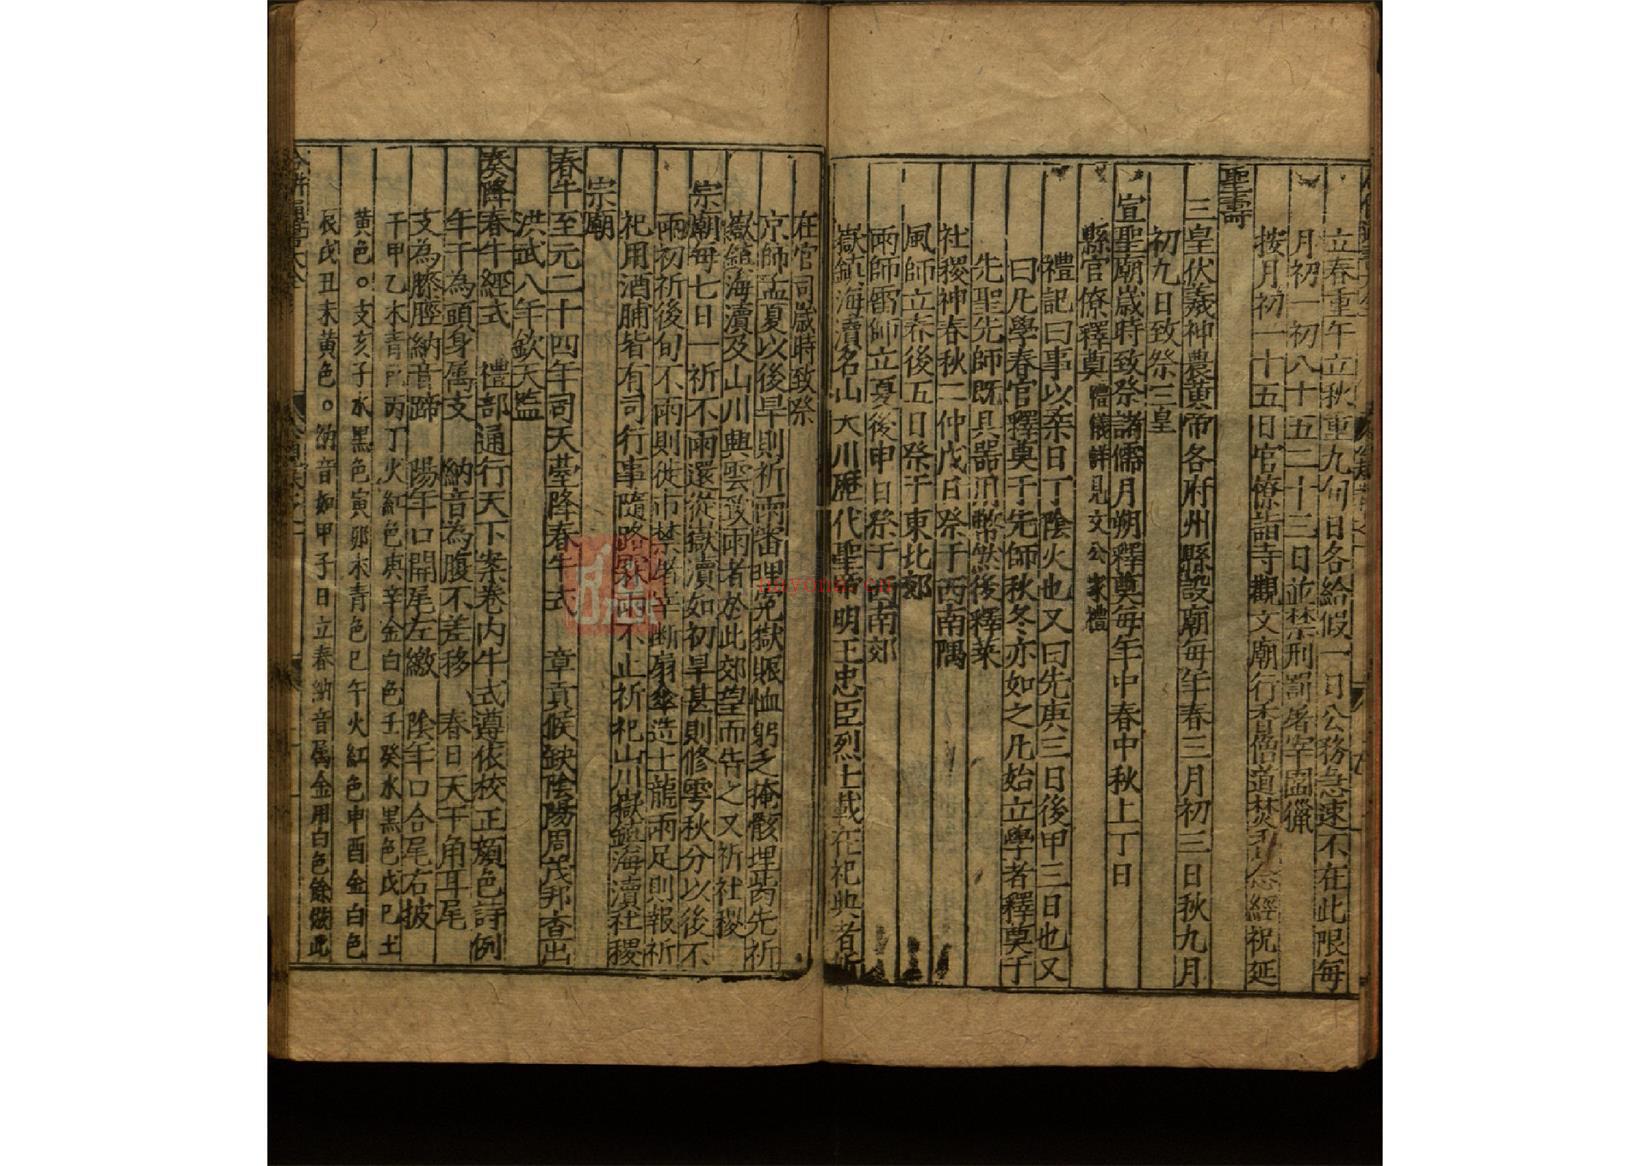 立春重午立秋重九旬日各給假一日公務急速不在此限每
月初一初八十五二十三日並禁刑罰屠宰畋獵
按月初一十五日官僚詣寺觀文廟行香僧道焚念經祝延
聖壽
三皇伏羲神農黃帝各府州縣設廟每年春三月初三日秋九月
初九日致祭三皇
宣聖廟歲時致祭諸儒月朔釋奠每年中春中秋上丁日
縣官僚釋奠禮儀詳見文公家禮
禮記曰事以柔日丁陰火也又曰先庚三日後甲三日也又
曰凡學春官釋奠于先師秋冬亦如之凡始立學者釋奠于
先聖先師既具器用幣然後釋菜
社稷神春秋二仲戊日祭于西南隅
風師立春後五日祭于東北郊
雨師雷師立夏後申日祭于西南郊
嶽鎮海瀆名山大川歷代聖帝明王忠臣烈士載在祀典者所
在官司歲時致祭
京師孟夏以後旱則祈雨審理冤獄賑恤躬乏掩骸埋胔先祈
嶽鎮海瀆及山川興雲致雨者於此郊望而告之又祈社稷
宗廟每七日一祈不雨還從嶽瀆如初旱甚則修雩秋分以後不
雨初祈後旬不雨則徙市禁屠宰斷扇傘造土龍雨足則報祈
祀用酒脯皆有司行事隨路缺雨不止祈祀山川嶽鎮海瀆社稷
宗廟
春牛至元二十四年司天臺降春牛式 章貢候缺陰陽周茂邦查出
洪武八年欽天監
奏降春牛經式 禮部通行天下案卷內牛式遵依校正顏色詩例
年干為頭身屬支 納音為腹不差移 春日天干角耳尾
支為膝脛納音蹄 陽年口開尾左繳 陰年口合尾右披
干甲乙木青色丙丁火紅色庚辛金白色壬癸水黑色戊巳土
黃色○支亥子水黑色寅卯木青色巳午火紅色申酉金白色
辰戌丑未黃色○納音如甲子日立春納音屬金用白色餘倣此